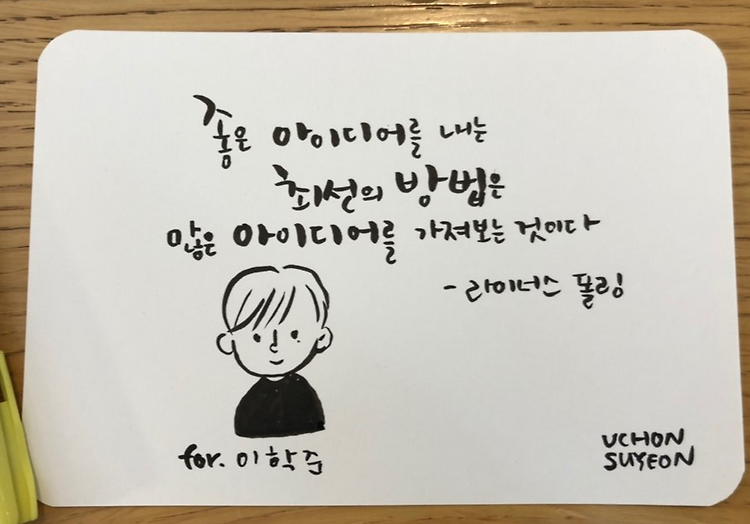 좋은 아이디어를 내는
최선의 방법은
많은 아이디어를 가져보는 것이다
- 라이너스 폴링
for. 이학준
UCHON
SUYEON